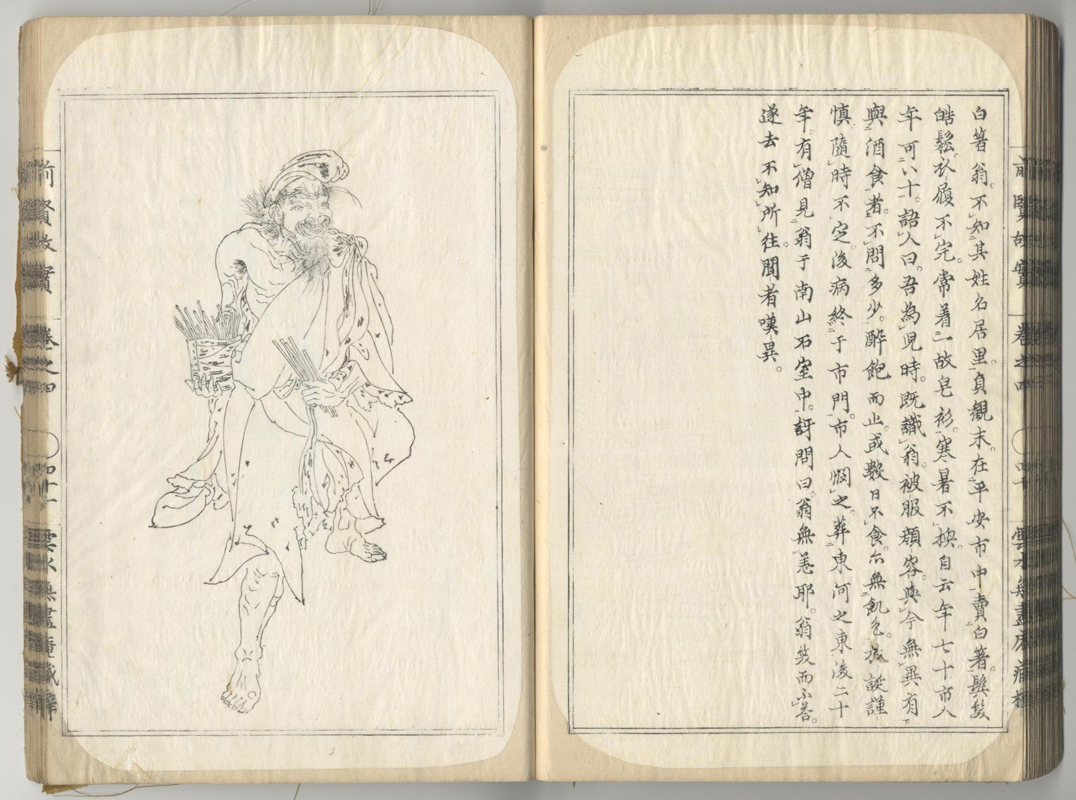 白箸翁不知其姓名居里貞観末在平安市中賣白箸鬓髮
皓鬆衣履不完常着一故皂衫寒暑不換自云年七十市人
年可八十語人曰吾為児時既識翁被服顔容與今無異有
與酒食者不問多少醉飽而止或數日不食亦無飢色放誕謹
慎隨時不定後病終于市門市人憫之葬東河之東後二十
年有僧見翁于南山石室中訝問曰翁無恙耶翁笑而不答
遂去不知所往聞者嘆異
前賢故實 卷之四 四十
前賢故實 卷之四 雲水無盡庵藏梓